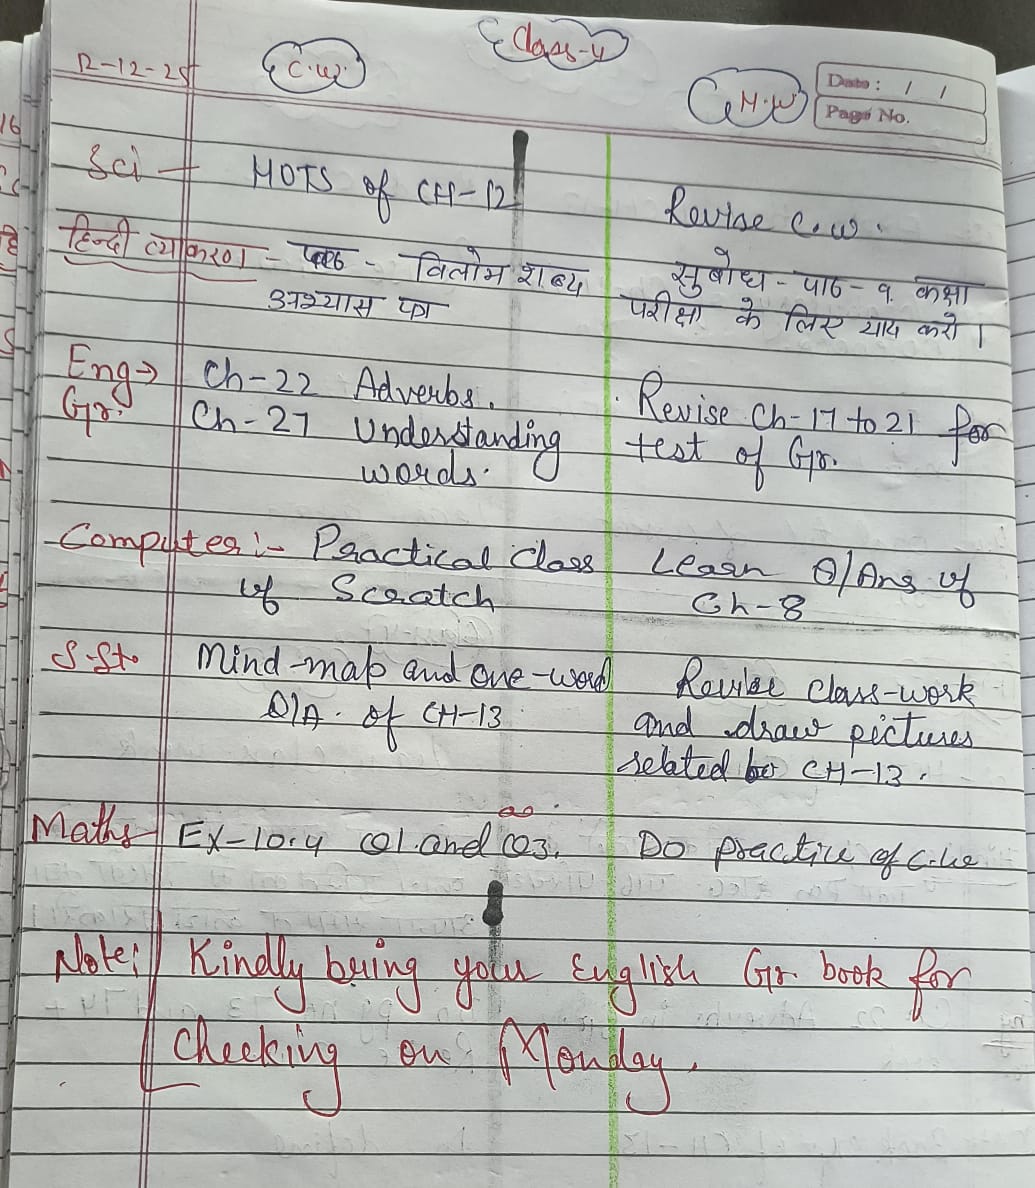 Class-4
12-12-25 C.W. H.W
Date: / /
Page No.
Sci - HOTS of CH-12
Revise C.W.
हिन्दी व्याकरण - - विलोम शब्द
अभ्यास का
सुबोध - पाठ - १ कक्षा
परीक्षा के लिए याद करो।
Eng → Ch-22 Adverbs.
Gr. Ch-27 Understanding
words.
Revise Ch-17 to 21 for
test of Gr.
Computer :- Practical Class
of Scratch
Learn Q/Ans of
Ch-8
S.St. Mind-map and one-word
Q/A. of CH-13
Revise class-work
and draw pictures
related to CH-13.
Maths - Ex-10.4 Q1. and Q3.
Do practice of C.W
Note: Kindly bring your English Gr. book for
checking on Monday.